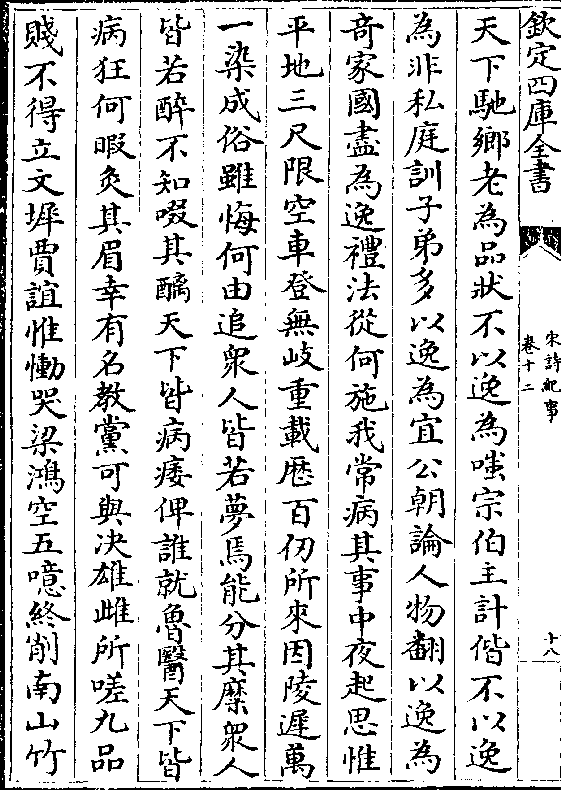 欽定四庫全書
宋詩紀事
卷十二
十八
天下馳鄉老為品狀不以逸為嗤宗伯主計偕不以逸
為非私庭訓子弟多以逸為宜公朝論人物翻以逸為
竒家國盡為逸禮法從何施我常病其事中夜起思惟
平地三尺限空車登無岐重載歴百仞所來因陵遲萬
一染成俗雖悔何由追衆人皆若夢焉能分其糜衆人
皆若醉不知啜其醨天下皆病痿俾誰就魯醫天下皆
病狂何暇灸其眉幸有名教黨可與决雄雌所嗟九品
賤不得立文墀賈誼惟慟哭梁鴻空五噫終削南山竹